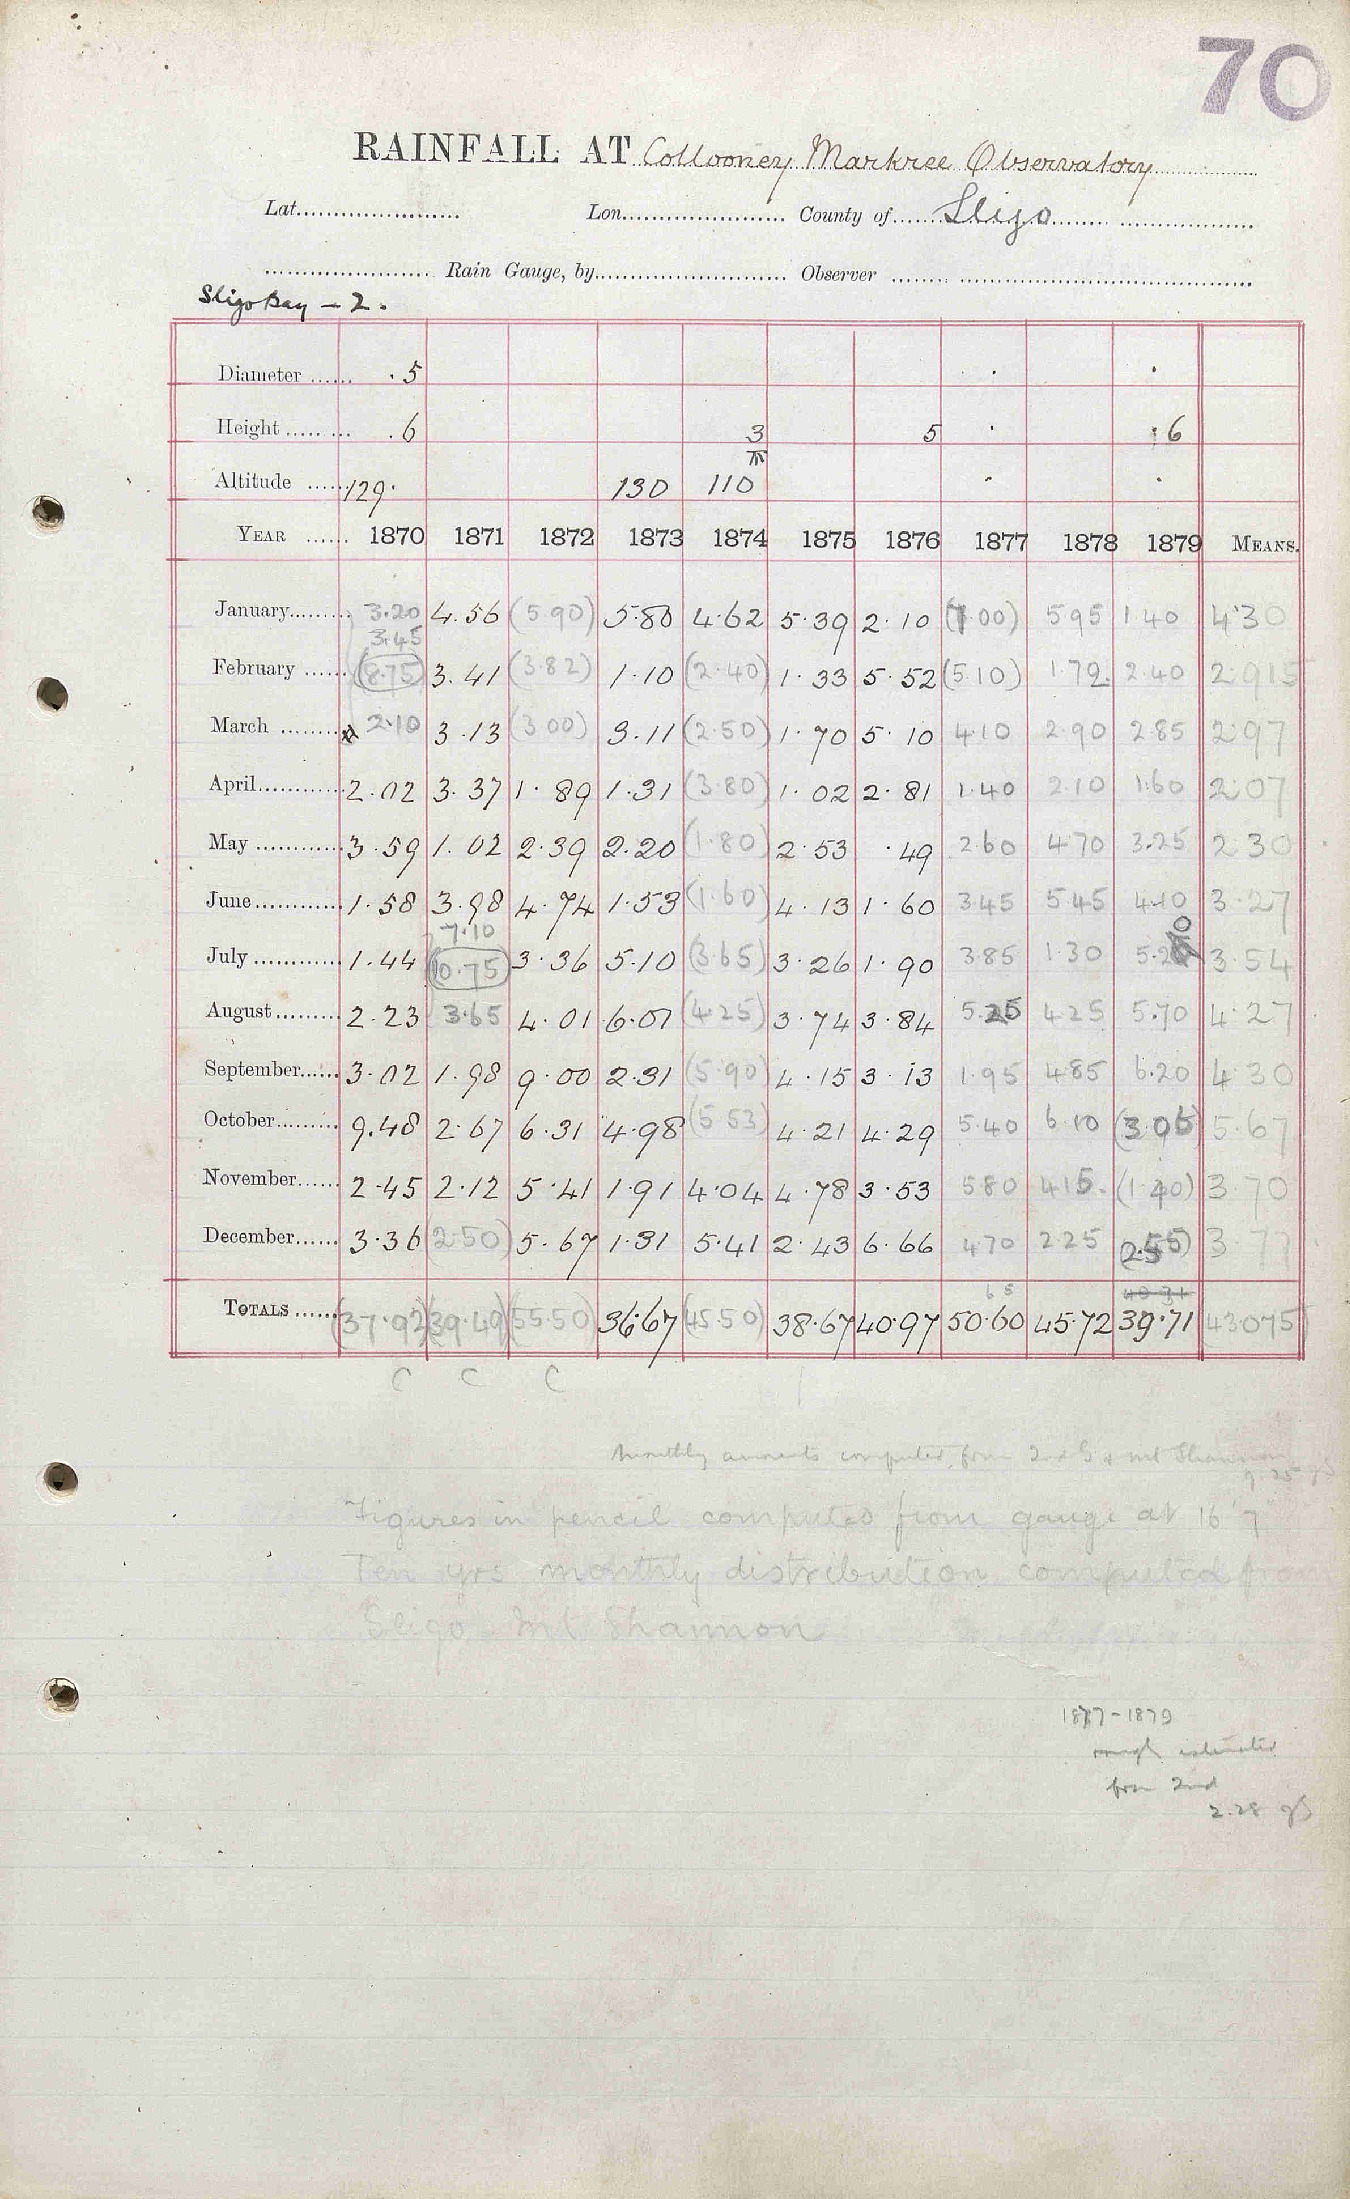 70
RAINFALL AT Collooney Markree Observatory
Lat. Lon. County of Sligo
Rain Gauge, by Observer
Sligo Bay – 2.
Diameter · 5
Height · 6 3 5 · 6
Altitude 129· 130 110
YEAR 1870 1871 1872 1873 1874 1875 1876 1877 1878 1879 MEANS.
January 3.20 4.56 (5.90) 5.80 4.62 5.39 2.10 (7.00) 5.95 1.40 4.30
3.45
February (8.75) 3.41 (3.82) 1.10 (2.40) 1.33 5.52 (5.10) 1.72 2.40 2.915
March 2.10 3.13 (3.00) 3.11 (2.50) 1.70 5.10 4.10 2.90 2.85 2.97
April 2.02 3.37 1.89 1.31 (3.80) 1.02 2.81 1.40 2.10 1.60 2.07
May 3.59 1.02 2.39 2.20 (1.80) 2.53 ·49 2.60 4.70 3.25 2.30
June 1.58 3.98 4.74 1.53 (1.60) 4.13 1.60 3.45 5.45 4.10 3.27
7.10
July 1.44 (10.75) 3.36 5.10 (3.65) 3.26 1.90 3.85 1.30 3.54
August 2.23 3.65 4.01 6.01 (4.25) 3.74 3.84 5.25 4.25 5.70 4.27
September 3.02 1.98 9.00 2.31 (5.90) 4.15 3.13 1.95 4.85 6.20 4.30
October 9.48 2.67 6.31 4.98 (5.53) 4.21 4.29 5.40 6.10 (3.05) 5.67
November 2.45 2.12 5.41 1.91 4.04 4.78 3.53 5.80 4.15 (1.20) 3.70
December 3.36 (2.50) 5.67 1.31 5.41 2.43 6.66 4.70 2.25 (2.55) 3.77
TOTALS (37.92) (39.49) (55.50) 36.67 (45.50) 38.67 40.97 50.60 45.72 39.71 (43.075)
C C C
Monthly amounts computed from 2nd G & Mt Shannon
Figures in pencil computed from gauge at 16'7
Ten yrs monthly distribution computed from
Sligo Mt Shannon
1877-1879
rough estimates
from 2nd
2.28